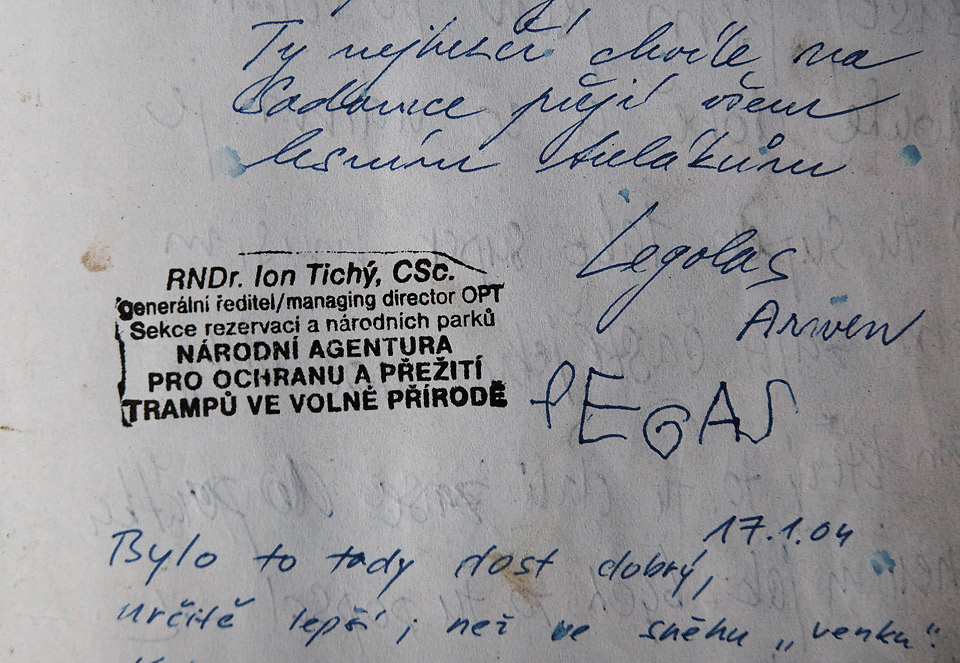 Ty nejhezčí chvíle na
Sadovce přejí všem
lesním tulákům
Legolas
Arwen
PEGAS
RNDr. Ion Tichý, CSc.
Generální ředitel/managing director OPT
Sekce rezervací a národních parků
NÁRODNÍ AGENTURA
PRO OCHRANU A PŘEŽITÍ
TRAMPŮ VE VOLNÉ PŘÍRODĚ
17.1.04
Bylo to tady dost dobrý,
určitě lepší, než ve sněhu „venku“.